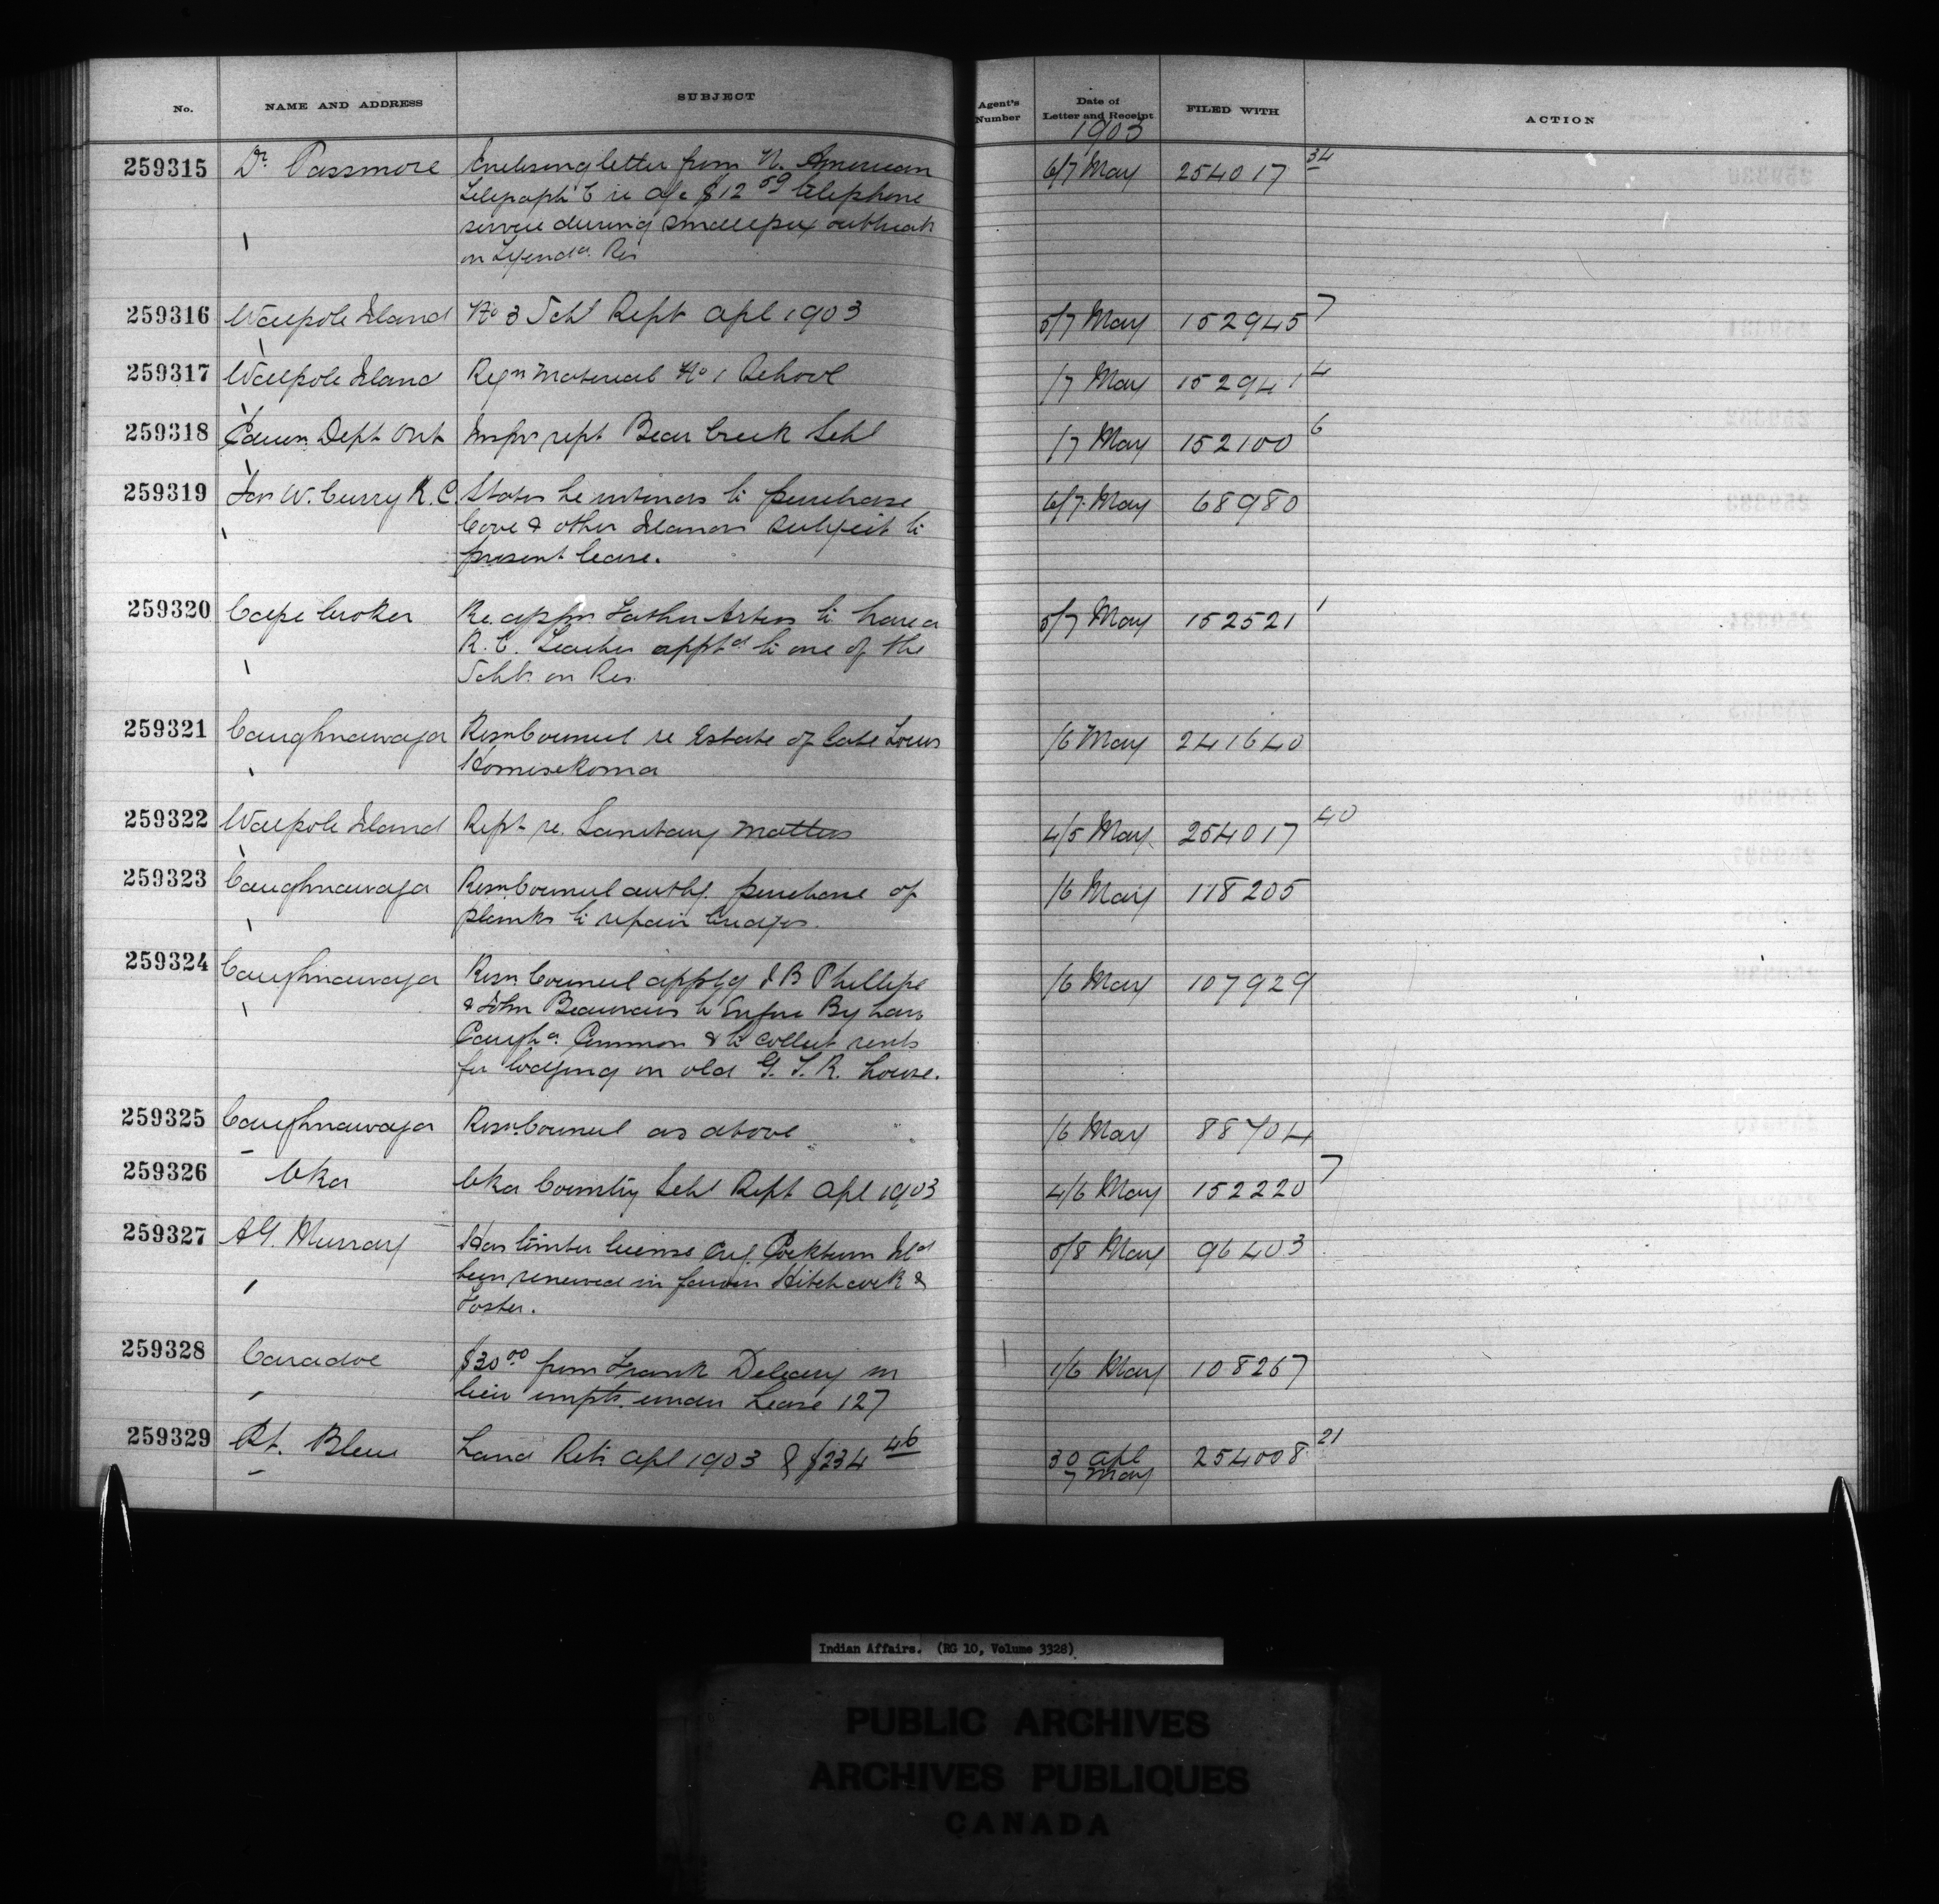 No. NAME AND ADDRESS SUBJECT Agent's Number Date of Letter and Receipt FILED WITH ACTION
1903
259315 Dr. Passmore Enclosing letter from N. American 6/7 May 254017 34
Telegraph Co re a/c $12 59 telephone
service during smallpox outbreak
on Tyenda. Res
259316 Walpole Island No 3 Schl Rept Apl 1903 5/7 May 152945 7
259317 Walpole Island Reqn Material No 1 School /7 May 152941 4
259318 Educn Dept Ont Inspr rept Bear Creek Schl /7 May 152100 6
259319 Jas W. Curry K.C. States he intends to purchase 6/7 May 68980
Cove & other Islands subject to
present lease.
259320 Cape Croker Re appn Father Artus to have a 5/7 May 152521 1
R.C. Teacher apptd to one of the
Schls on Res.
259321 Caughnawaga Resn Council re Estate of late Louis /6 May 241640
259322 Walpole Island Rept re. Sanitary matters 4/5 May 254017 40
259323 Caughnawaga Resn Council authg. purchase of /6 May 118205
planks to repair bridges.
259324 Caughnawaga Resn Council apptg J B Phillips /6 May 107929
& John Beauvais to Enforce By Laws
Caugha. Common & to collect rents
for lodging in old G. T. R. house.
259325 Caughnawaga Resn Council as above /6 May 88704
259326 Oka Oka Country Schl Rept Apl 1903 4/6 May 152220 7
259327 AG. Murray Has timber license Cockburn Isld 5/8 May 96403
been renewed in favour Hitchcock &
Foster.
259328 Caradoc $30 00 from Frank Deleary in 1/6 May 108267
lieu impts. under Lease 127
259329 Rt. Bleu Land Retn Apl 1903 & $234 46 30 Apl 254008 21
7 May
Indian Affairs. (RG 10, Volume 3328)
PUBLIC ARCHIVES
ARCHIVES PUBLIQUES
CANADA